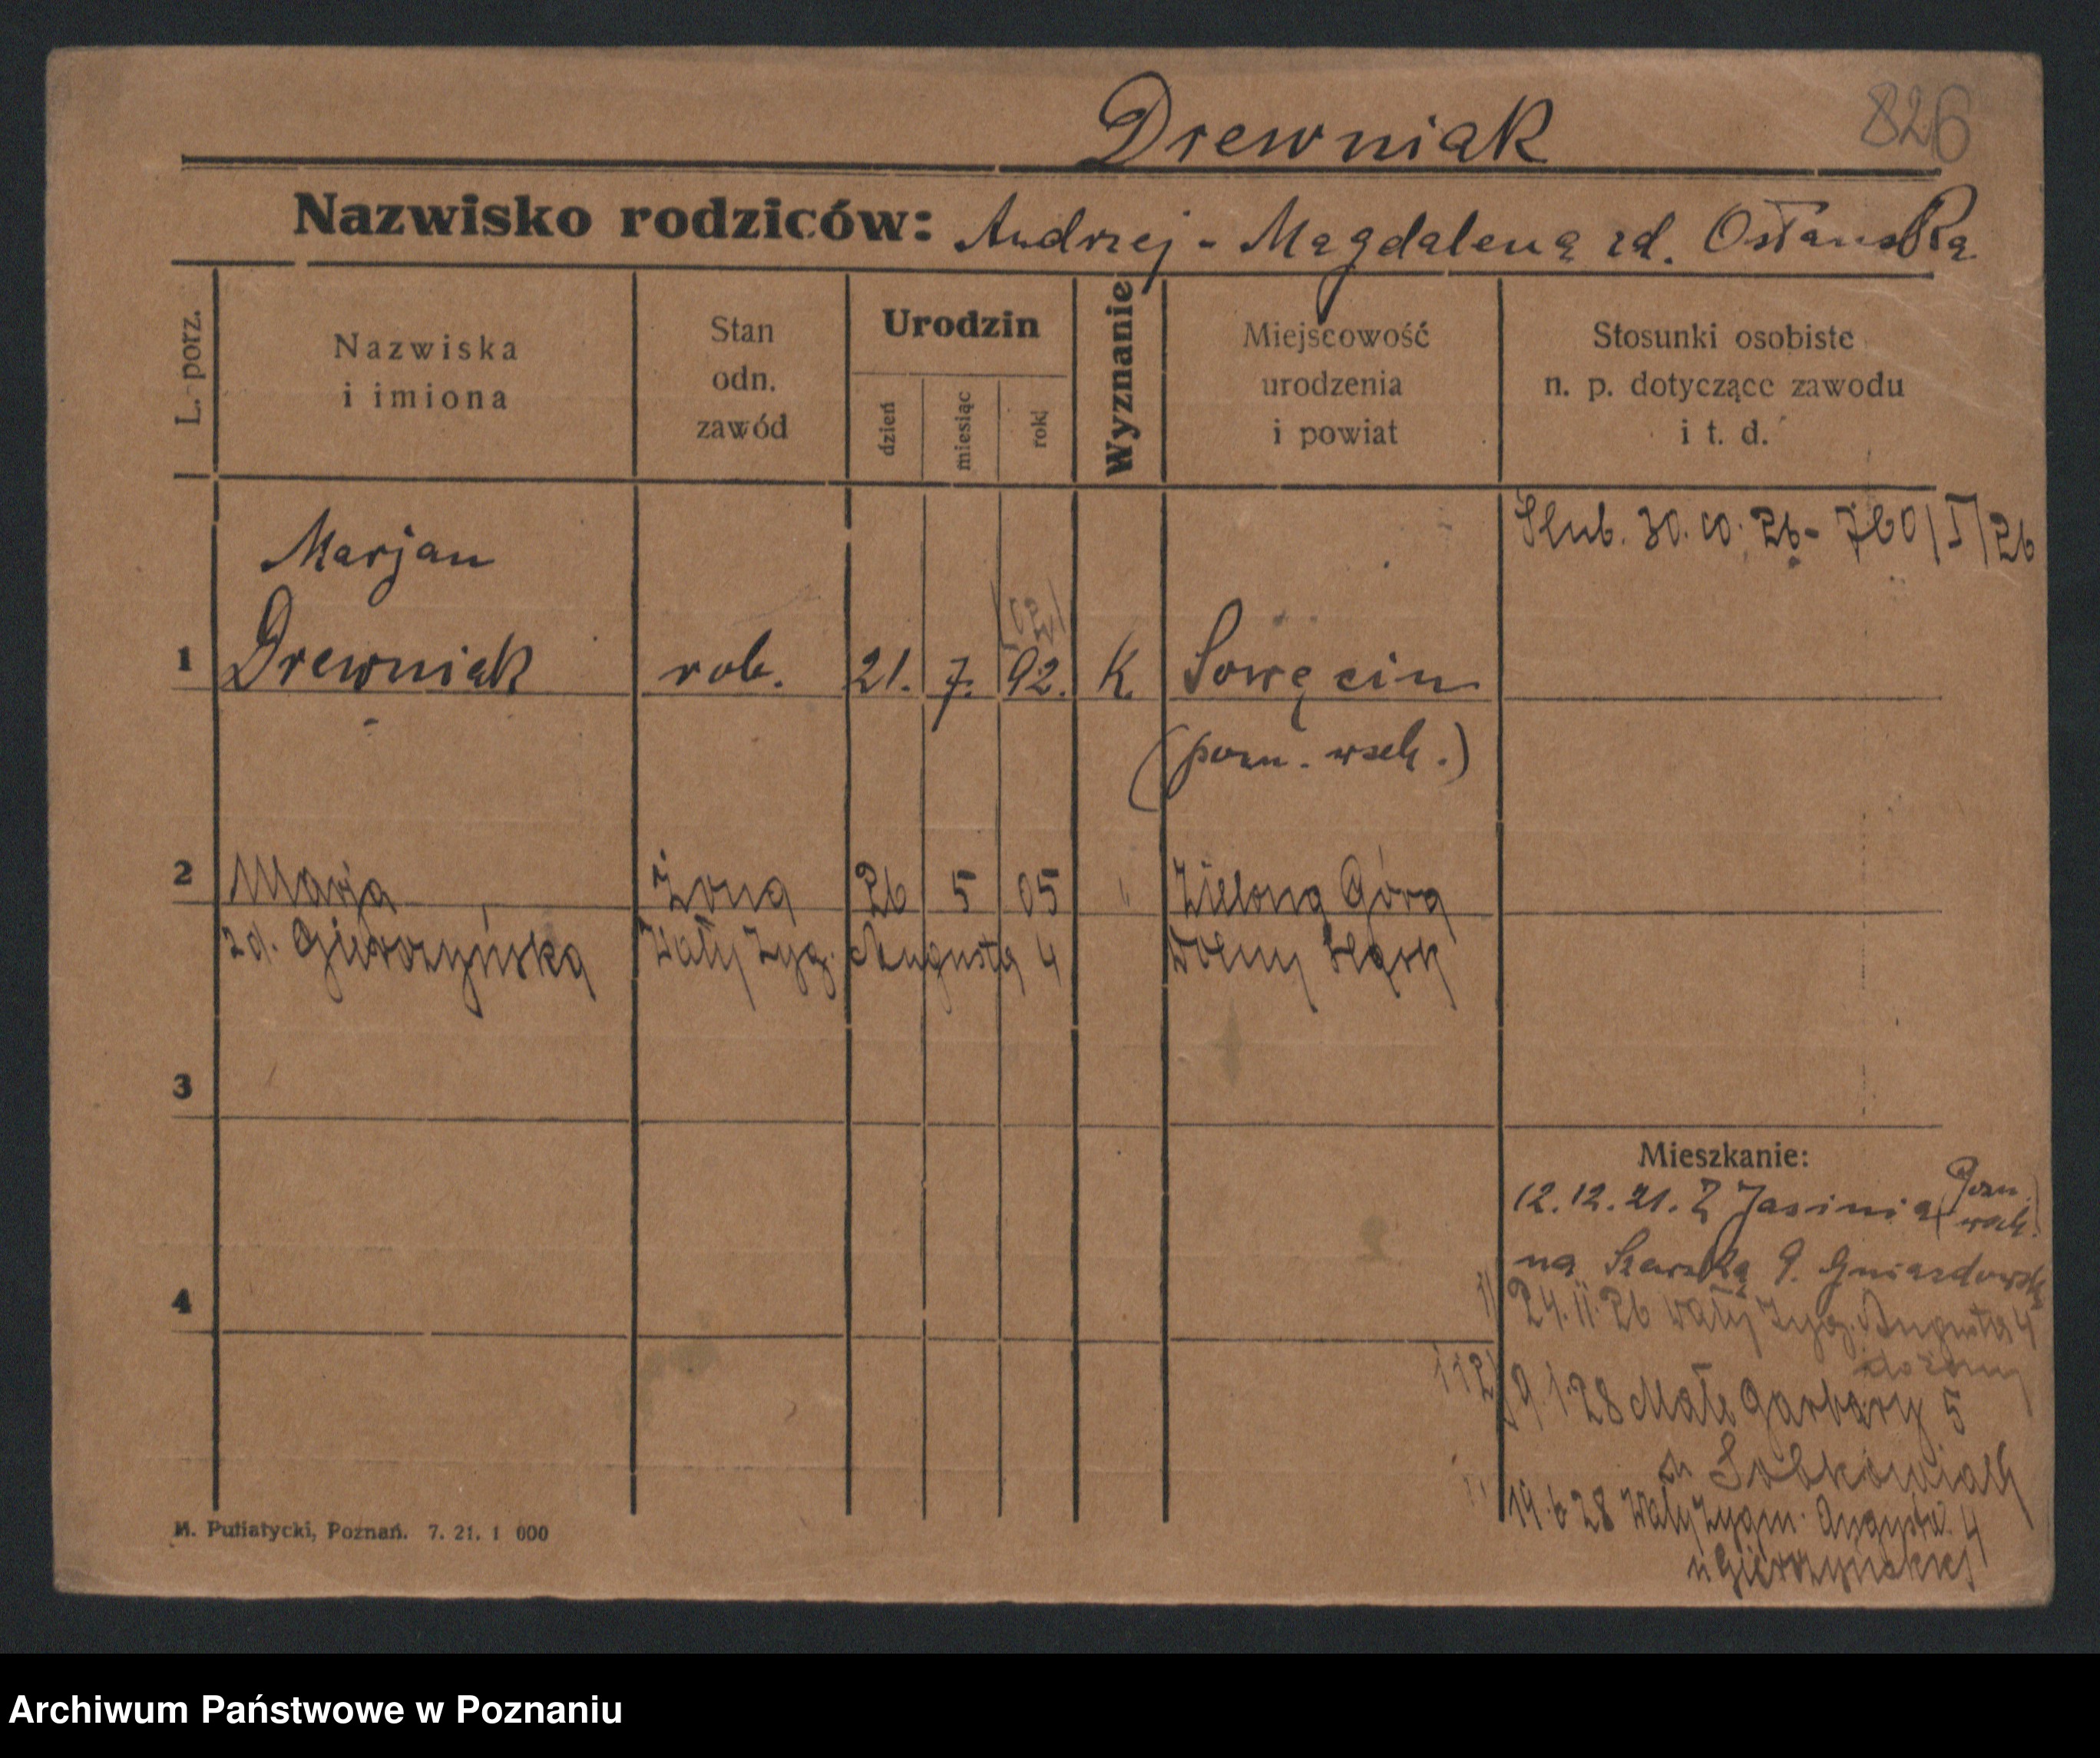 Drewniak
826
Nazwisko rodziców: Andrzej - Magdalena zd. Osłańska
L. porz.
Nazwiska
i imiona
Stan
odn.
zawód
Urodzin
dzień
miesiąc
rok
Wyznanie
Miejscowość
urodzenia
i powiat
Stosunki osobiste
n. p. dotyczące zawodu
i t. d.
Ślub. 30. 10. 26 - 760/I/26
Marjan
1 Drewniak rob. 21. 7. 92. K. Sowęcin
(pozn. wsch.)
2 Marja żona 26 5 05 " Zielona Góra
zd. Gierczyńska Wały Zyg. Augusta 4 Dolny Śląsk
3
4
Mieszkanie:
12.12.21. Z Jasinia (pozn. wsch.)
na Szewska 9. Gniazdowsk
1) 24.11.26 Wały Zyg. Augusta 4
do żony
1 i 2) 9.1.28 Małe Garbary 5
Sobkowiak
19.6.28 Wały Zygm. Augusta 4
u Gierczyńskiej
M. Putiatycki, Poznań. 7. 21. 1 000
Archiwum Państwowe w Poznaniu